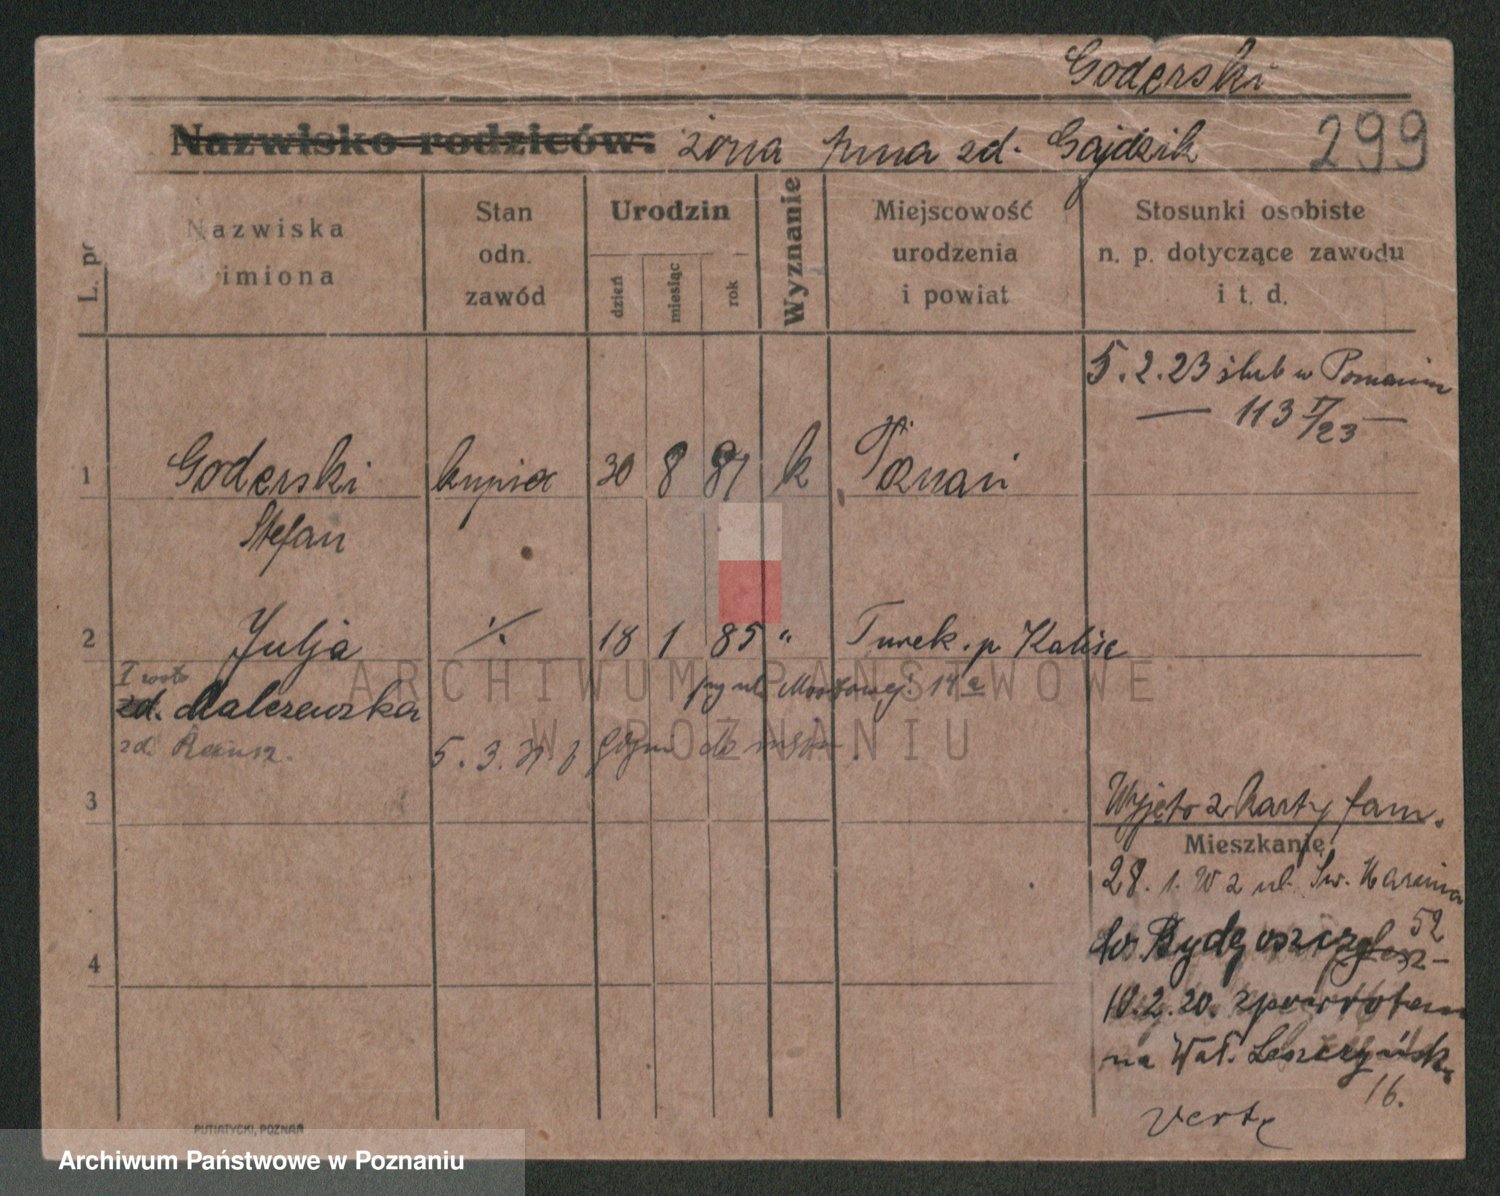 Goderski
Nazwisko rodziców: żona zd. Gajdzik 299
L. po
Nazwiska
imiona
Stan
odn.
zawód
Urodzin
dzień
miesiąc
rok
Wyznanie
Miejscowość
urodzenia
i powiat
Stosunki osobiste
n. p. dotyczące zawodu
i t. d.
5.2.23 ślub w Poznaniu
113 V/23
1 Goderski kupiec 30 8 81 k Poznań
Stefan
2 Julja ·/. 18 1 85 " Turek. p. Kalisz
I voto
zd. Malczewska przy ul. Mostowej 14a
zd. Rausz.
5. 3.
3
Wyjęto z karty fam.
Mieszkanie
28. 1. z ul. Św. Marcina
52
do Bydgoszczy
10.2.20. zpowrotem
na Wał. Leszczyńsk
16.
verte
4
ARCHIWUM PAŃSTWOWE
W POZNANIU
PUTIATYCKI, POZNAŃ
Archiwum Państwowe w Poznaniu